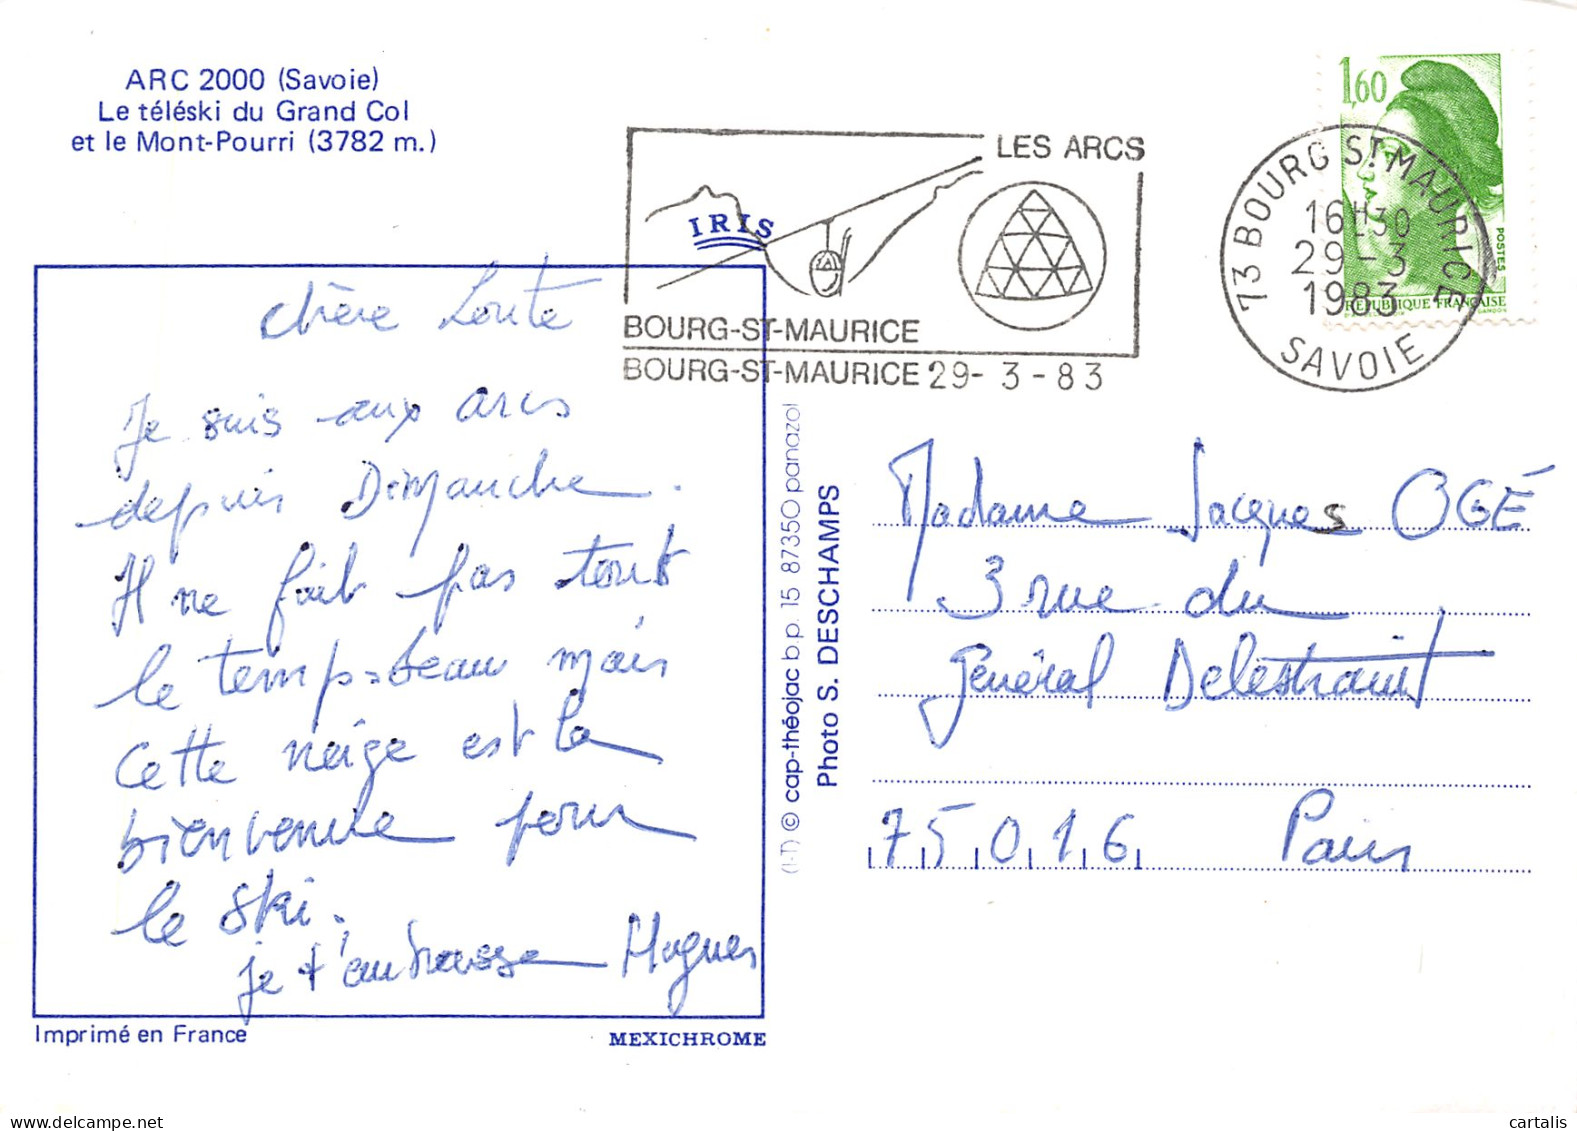 ARC 2000 (Savoie)
Le téléski du Grand Col
et le Mont-Pourri (3782 m.)
LES ARCS
IRIS
BOURG-ST-MAURICE
BOURG-ST-MAURICE 29-3-83
1,60
POSTES
REPUBLIQUE FRANÇAISE
GANDON
73 BOURG ST MAURICE
16H30
29-3
1983
SAVOIE
chère Loute
Je suis aux arcs
depuis Dimanche.
Il ne fait pas tout
le temps beau mais
cette neige est la
bienvenue pour
le ski.
je t'embrasse Hugues
Imprimé en France
MEXICHROME
(I-T) © cap-théojac b.p. 15 87350 panazol
Photo S. DESCHAMPS
Madame Jacques OGÉ
3 rue du
Général Delestraint
75016 Paris
cartalis